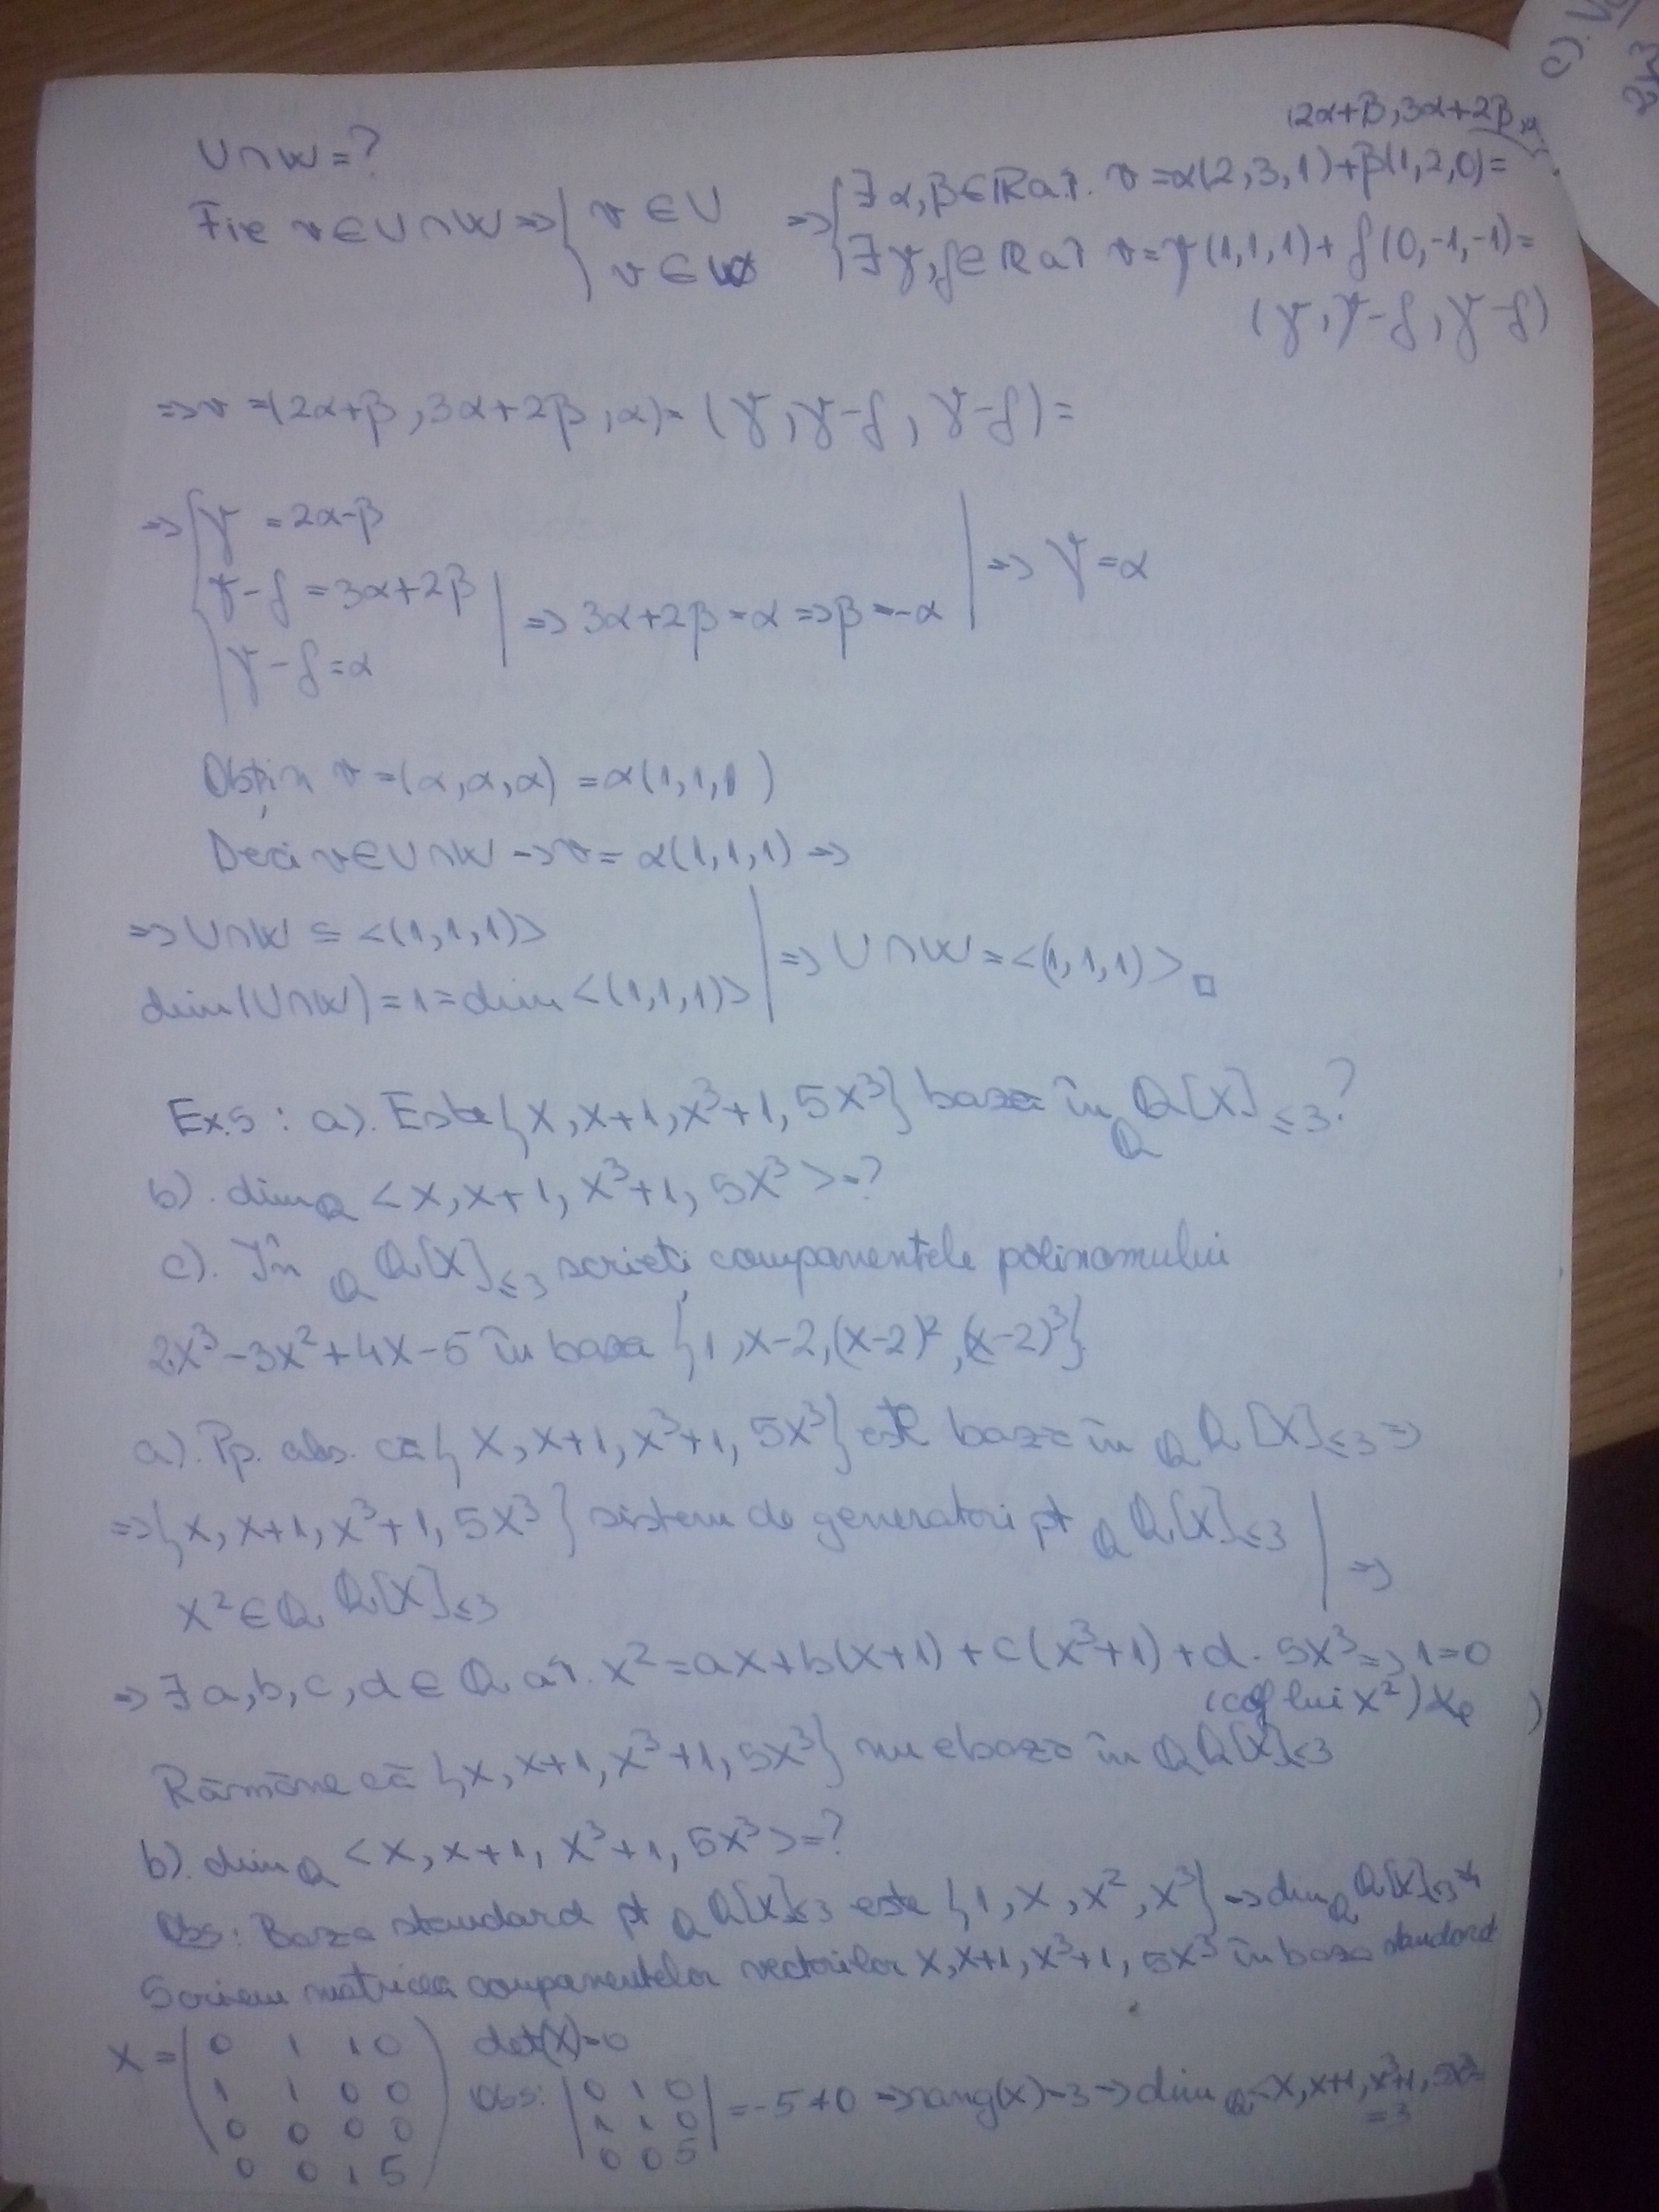 U∩W=?
(2α+β, 3α+2β, α)
Fie v∈U∩W => { v∈U => { ∃α,β∈ℝ a.î. v=α(2,3,1)+β(1,2,0)=
v∈W ∃γ,δ∈ℝ a.î v=γ(1,1,1)+δ(0,-1,-1)=
(γ, γ-δ, γ-δ)
=> v=(2α+β, 3α+2β, α)=(γ, γ-δ, γ-δ)=
=> { γ=2α-β
γ-δ=3α+2β | => 3α+2β=α => β=-α | => γ=α
γ-δ=α
Obțin v=(α,α,α)=α(1,1,1)
Deci v∈U∩W => v=α(1,1,1) =>
=> U∩W ⊆ <(1,1,1)> | => U∩W=<(1,1,1)> □
dim(U∩W)=1=dim<(1,1,1)>
Ex.5: a). Este {X, X+1, X³+1, 5X³} baza în ℚ ℚ[X]≤3?
b). dim ℚ <X, X+1, X³+1, 5X³>=?
c). În ℚ ℚ[X]≤3 scrieți componentele polinomului
2X³-3X²+4X-5 în baza {1, X-2, (X-2)², (X-2)³}
a). Pp. abs. că {X, X+1, X³+1, 5X³} este baza în ℚ ℚ[X]≤3 =>
=> {X, X+1, X³+1, 5X³} sistem de generatori pt ℚ ℚ[X]≤3 | =>
X²∈ℚ ℚ[X]≤3
=> ∃a,b,c,d∈ℚ a.î. X²=aX+b(X+1)+c(X³+1)+d·5X³ => 1=0
(coef lui X²)
Rămâne că {X, X+1, X³+1, 5X³} nu e baza în ℚ ℚ[X]≤3
b). dim ℚ <X, X+1, X³+1, 5X³>=?
Obs: Baza standard pt ℚ ℚ[X]≤3 este {1, X, X², X³} => dim ℚ ℚ[X]≤3=4
Scriem matricea componentelor vectorilor X, X+1, X³+1, 5X³ în baza standard
X = ( 0 1 1 0 ) det(X)=0
1 1 0 0 Obs: | 0 1 0 | =-5≠0 => rang(X)=3 => dim ℚ <X, X+1, X³+1, 5X³>
0 0 0 0 1 1 0 =3
0 0 1 5 0 0 5